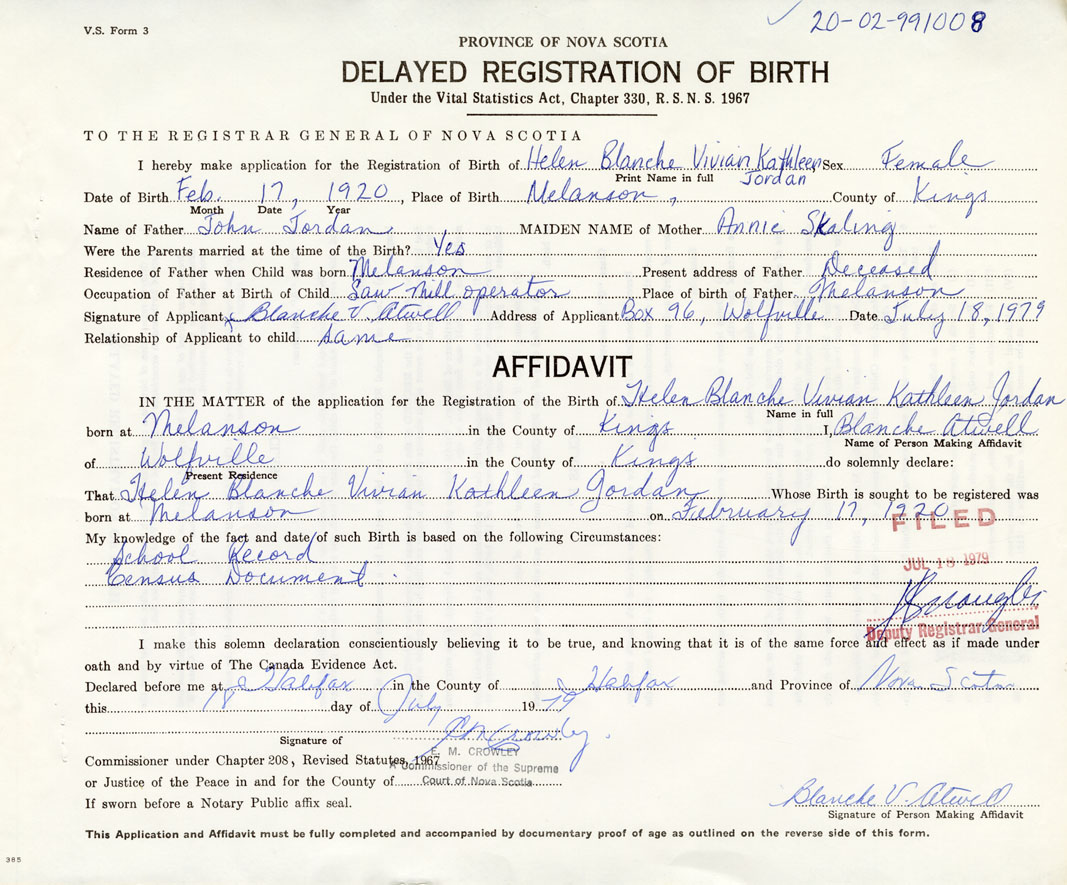 V.S. Form 3
20-02-991008
PROVINCE OF NOVA SCOTIA
DELAYED REGISTRATION OF BIRTH
Under the Vital Statistics Act, Chapter 330, R. S. N. S. 1967
TO THE REGISTRAR GENERAL OF NOVA SCOTIA
I hereby make application for the Registration of Birth of Helen Blanche Vivian Kathleen Sex Female
Print Name in full Jordan
Date of Birth Feb. 17, 1920, Place of Birth Melanson, County of Kings
Month Date Year
Name of Father John Jordan MAIDEN NAME of Mother Annie Skaling
Were the Parents married at the time of the Birth? Yes
Residence of Father when Child was born Melanson Present address of Father Deceased
Occupation of Father at Birth of Child Saw Mill operator Place of birth of Father Melanson
Signature of Applicant x Blanche V. Atwell Address of Applicant Box 96, Wolfville Date July 18, 1979
Relationship of Applicant to child same
AFFIDAVIT
IN THE MATTER of the application for the Registration of the Birth of Helen Blanche Vivian Kathleen Jordan
Name in full
born at Melanson in the County of Kings I, Blanche Atwell
Name of Person Making Affidavit
of Wolfville in the County of Kings do solemnly declare:
Present Residence
That Helen Blanche Vivian Kathleen Jordan Whose Birth is sought to be registered was
born at Melanson on February 17, 1920
FILED
My knowledge of the fact and date of such Birth is based on the following Circumstances:
School Record
JUL 18 1979
Census Document
Deputy Registrar General
I make this solemn declaration conscientiously believing it to be true, and knowing that it is of the same force and effect as if made under
oath and by virtue of The Canada Evidence Act.
Declared before me at Halifax in the County of Halifax and Province of Nova Scotia
this 18 day of July 1979
Signature of
E. M. CROWLEY
Commissioner under Chapter 208, Revised Statutes, 1967
A Commissioner of the Supreme
or Justice of the Peace in and for the County of Court of Nova Scotia
If sworn before a Notary Public affix seal.
Blanche V. Atwell
Signature of Person Making Affidavit
This Application and Affidavit must be fully completed and accompanied by documentary proof of age as outlined on the reverse side of this form.
385